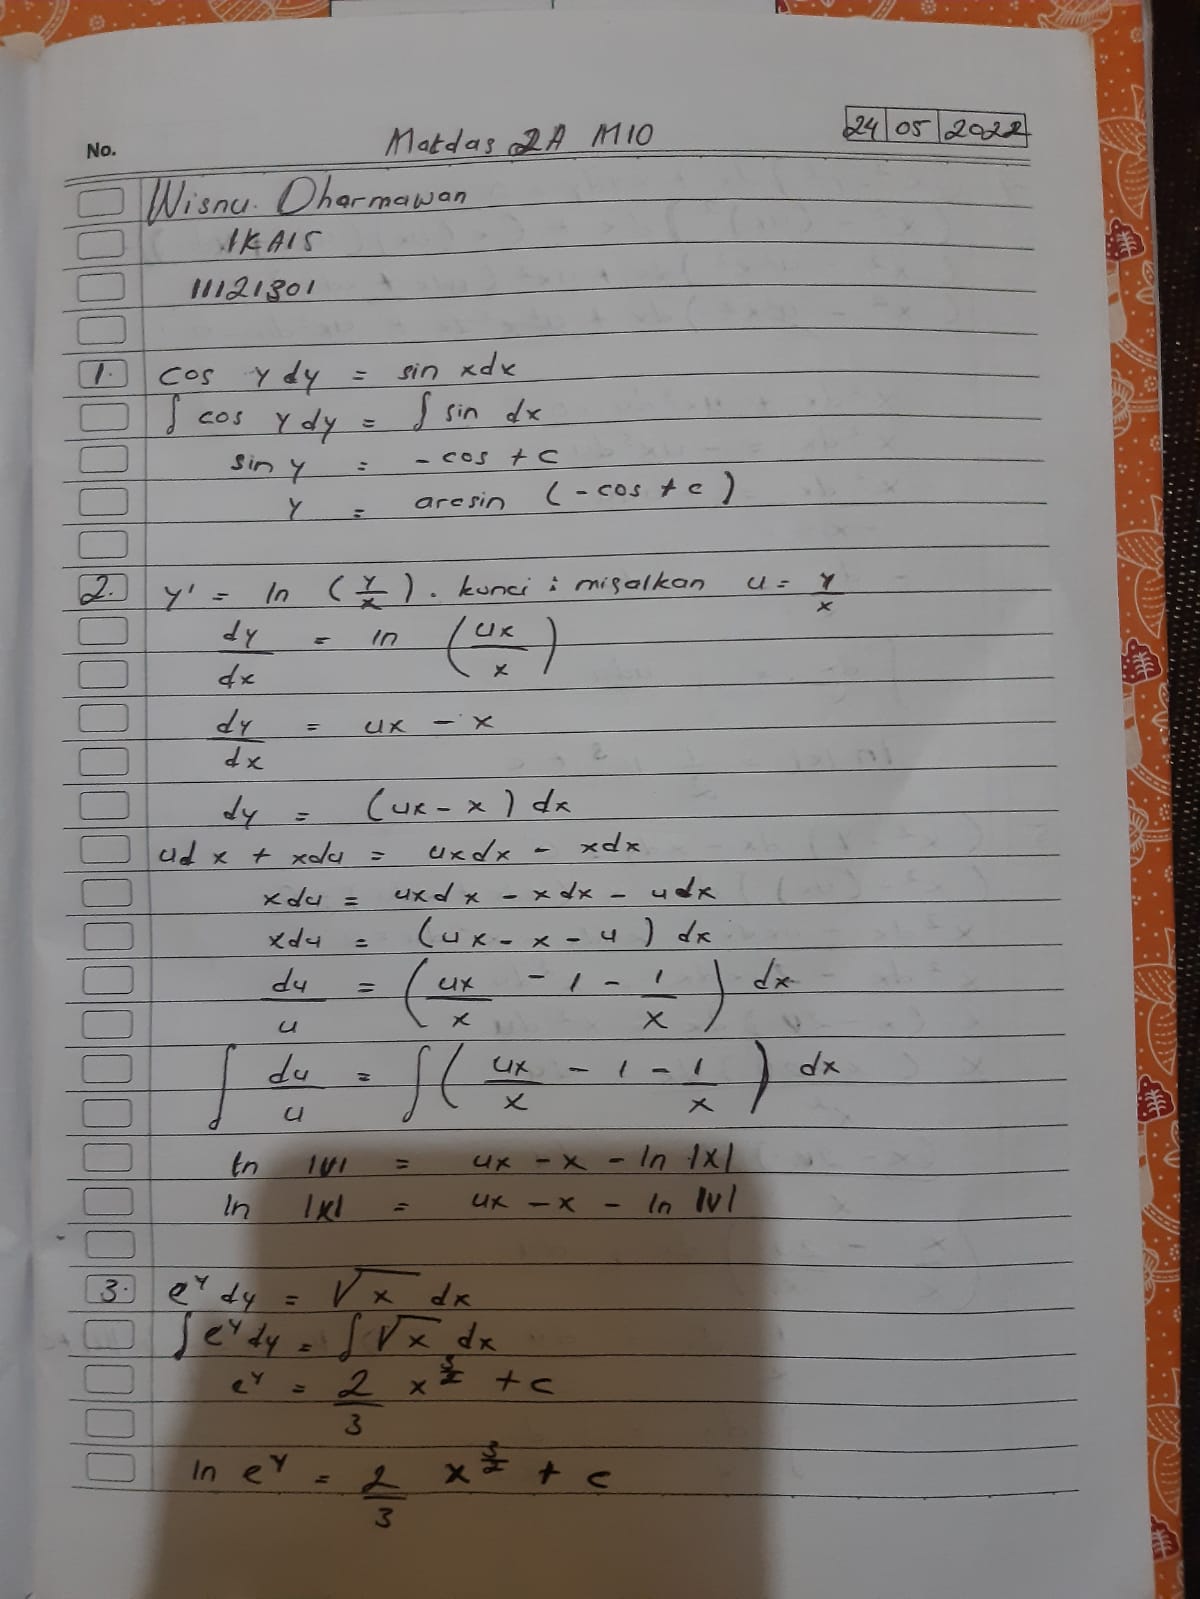 No.
Matdas 2A M10
24 05 2022
Wisnu Dharmawan
1KA15
11121301
1. cos y dy = sin xdx
∫ cos y dy = ∫ sin dx
sin y = -cos + c
y = arcsin (-cos + c)
2. y' = ln (y/x). kunci : misalkan u = y/x
dy/dx = ln (ux/x)
dy/dx = ux - x
dy = (ux - x) dx
udx + xdu = uxdx - xdx
xdu = uxdx - xdx - udx
xdu = (ux - x - u) dx
du/u = (ux/x - 1 - 1/x) dx
∫ du/u = ∫ (ux/x - 1 - 1/x) dx
ln |U| = ux - x - ln |x|
ln |x| = ux - x - ln |U|
3. e^y dy = √x dx
∫ e^y dy = ∫ √x dx
e^y = 2/3 x^3/2 + c
ln e^y = 2/3 x^3/2 + c